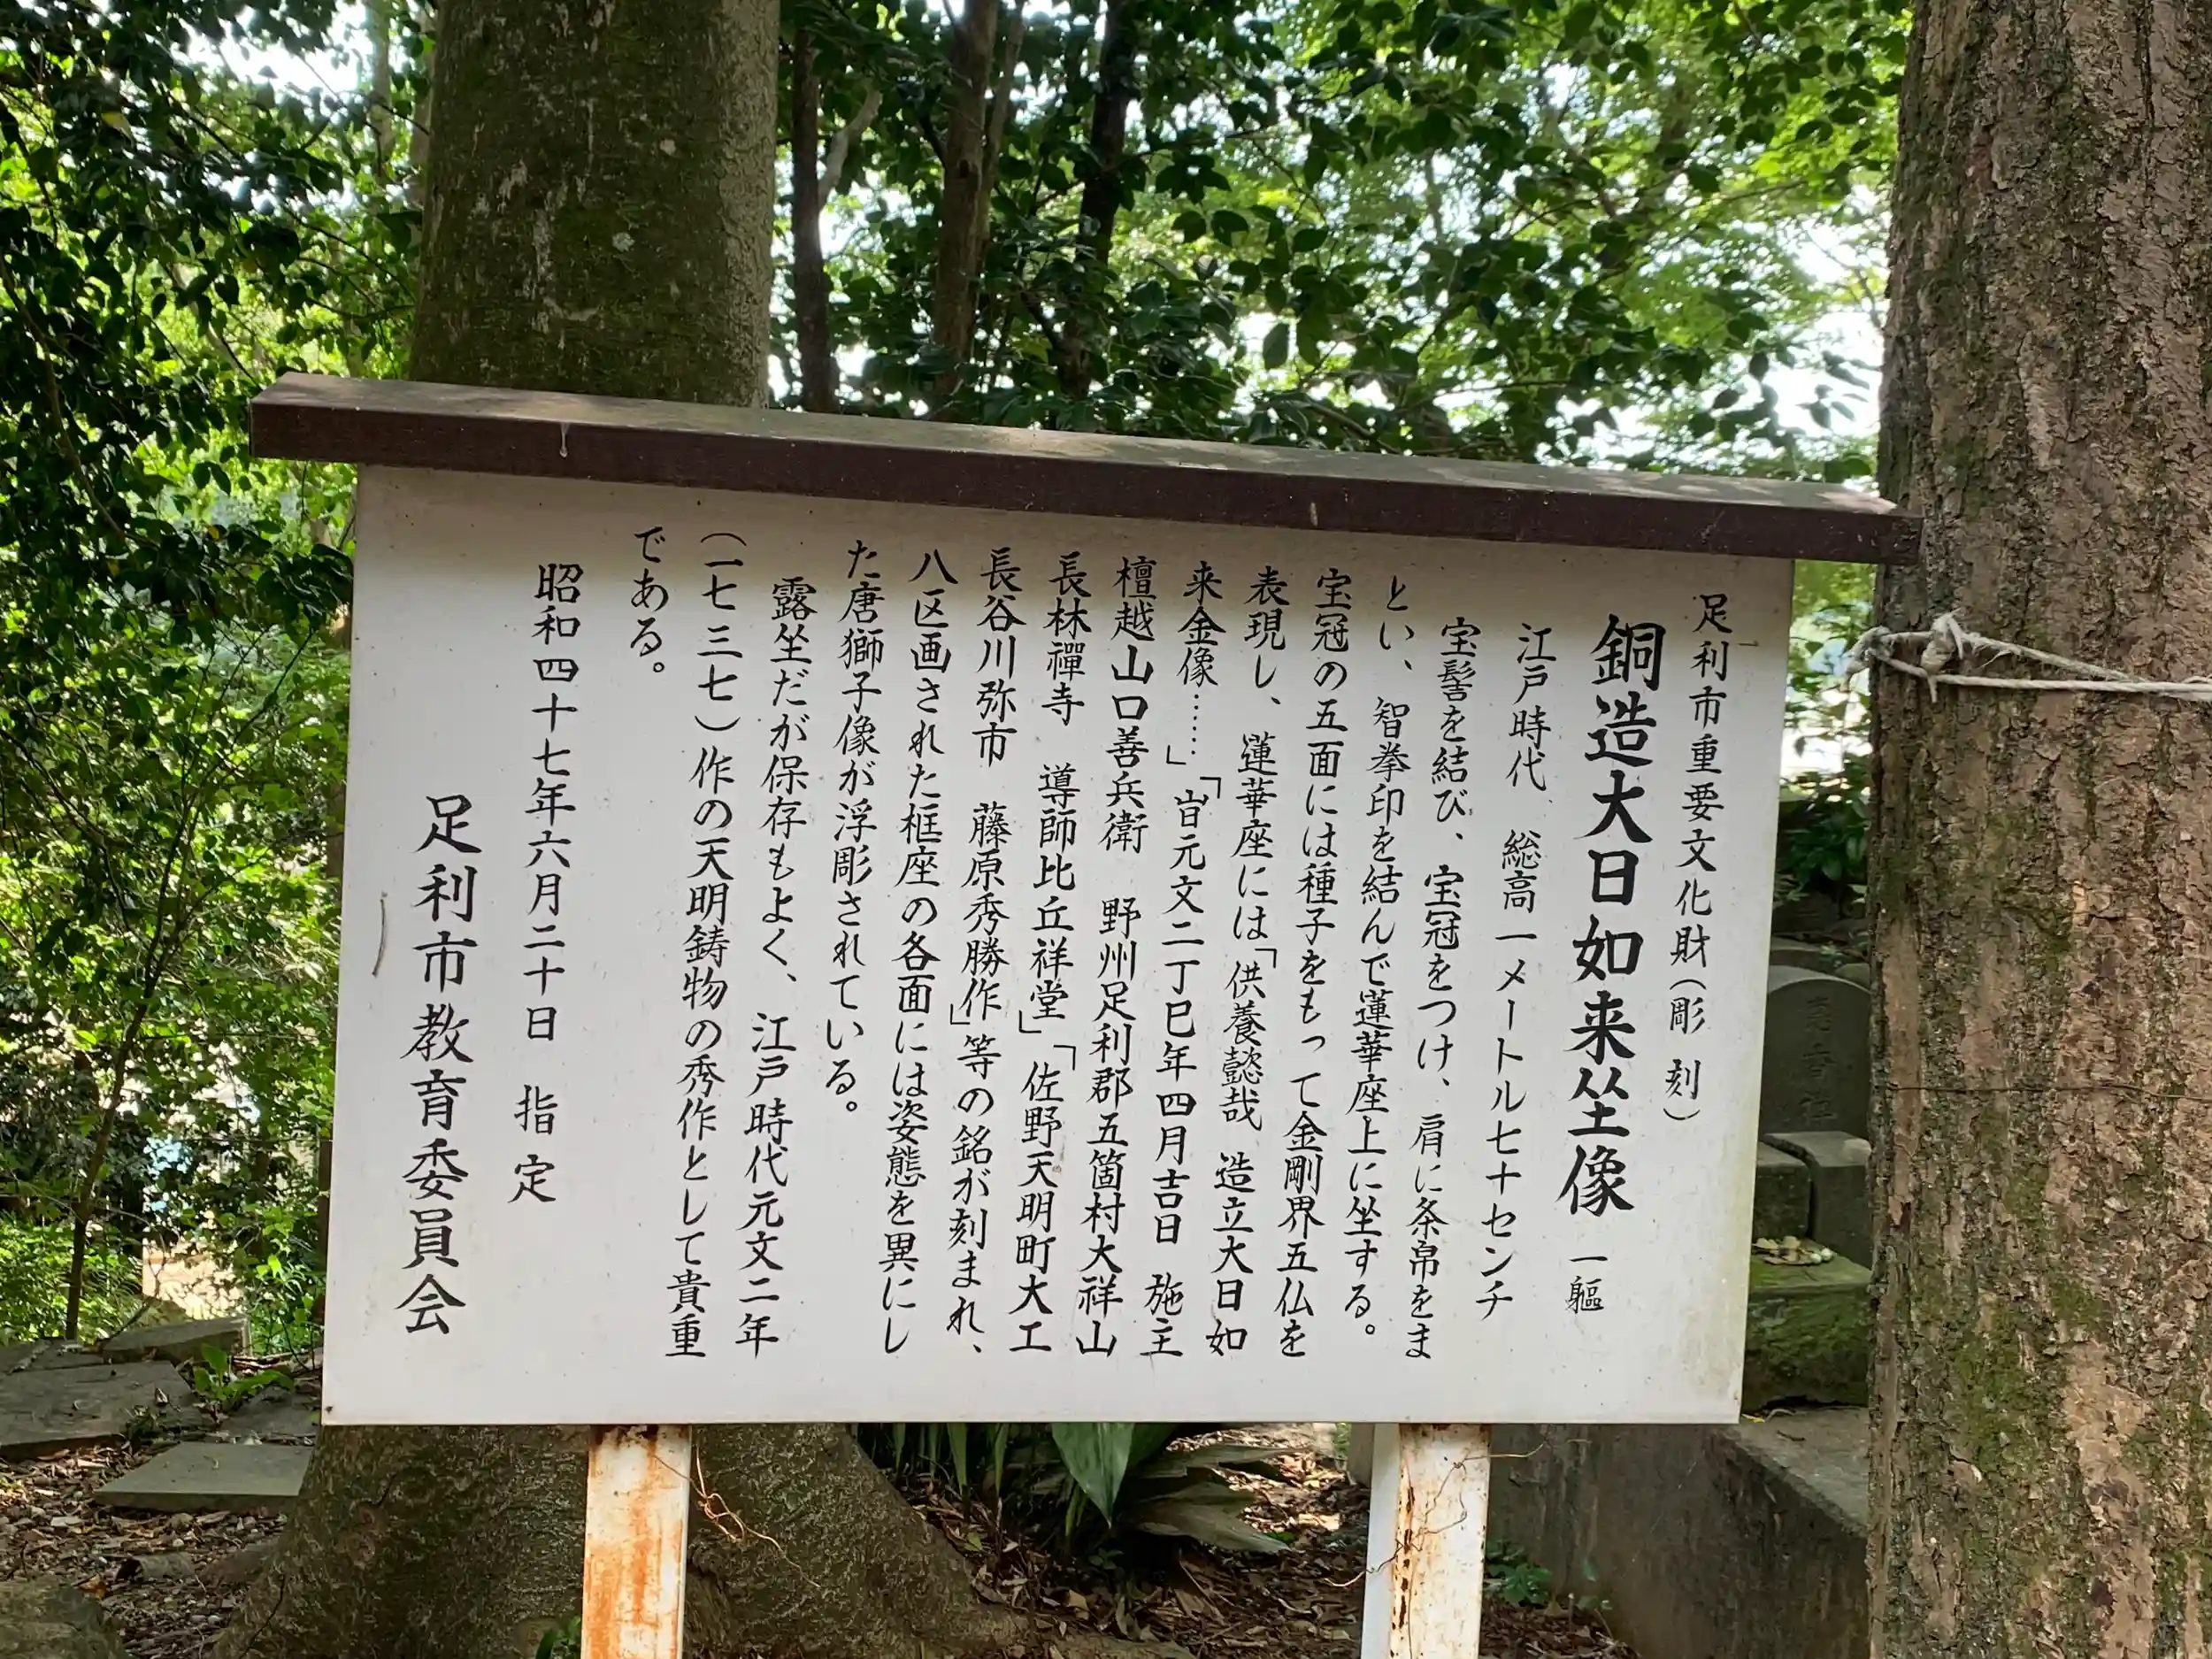 足利市重要文化財（彫刻）
銅造大日如来坐像 一軀
江戸時代 総高一メートル七十センチ
宝髻を結び、宝冠をつけ、肩に条帛をま
とい、智拳印を結んで蓮華座上に坐する。
宝冠の五面には種子をもって金剛界五仏を
表現し、蓮華座には「供養懿哉 造立大日如
来金像……」「旹元文二丁巳年四月吉日 施主
檀越山口善兵衛 野州足利郡五箇村大祥山
長林禪寺 導師比丘祥堂」「佐野天明町大工
長谷川弥市 藤原秀勝作」等の銘が刻まれ、
八区画された框座の各面には姿態を異にし
た唐獅子像が浮彫されている。
露坐だが保存もよく、江戸時代元文二年
（一七三七）作の天明鋳物の秀作として貴重
である。
昭和四十七年六月二十日 指定
足利市教育委員会